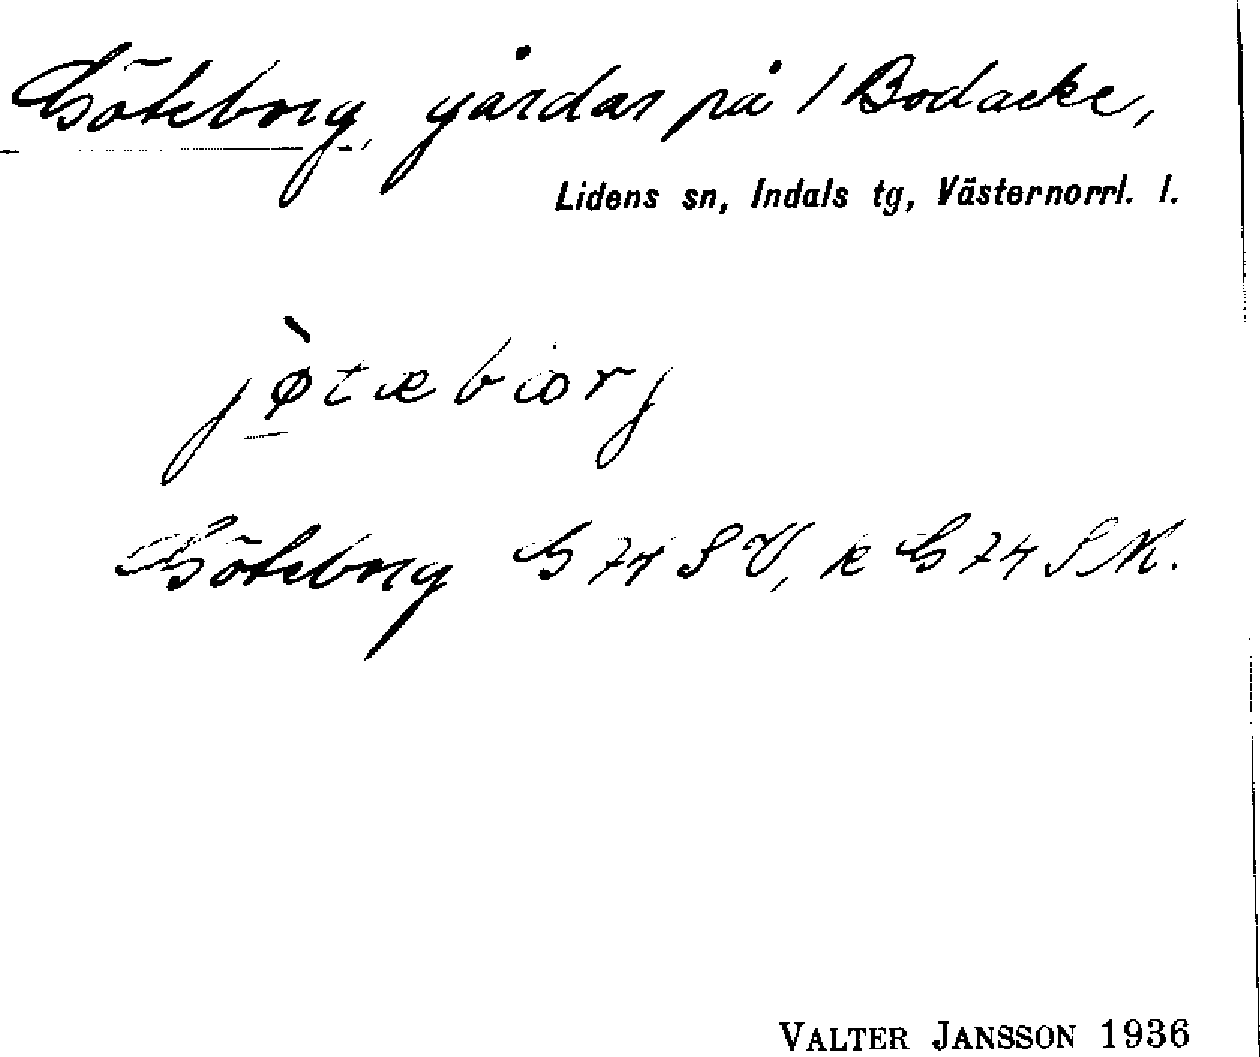 Göteborg, gårdar på 1 Bodacke,
Lidens sn, Indals tg, Västernorrl. l.
jø̀tæbiorj
Göteborg G 74 S V, k G 74 S K.
VALTER JANSSON 1936